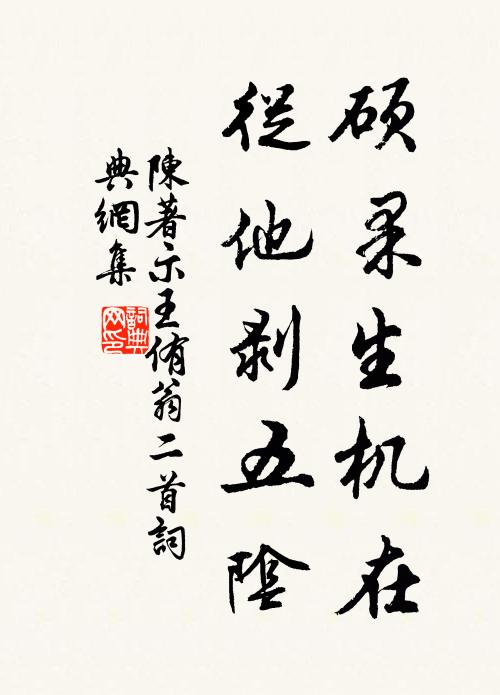 硕果生机在
從他剥五陰
陳著示王侑翁二首詞
典網集
詞典
网印